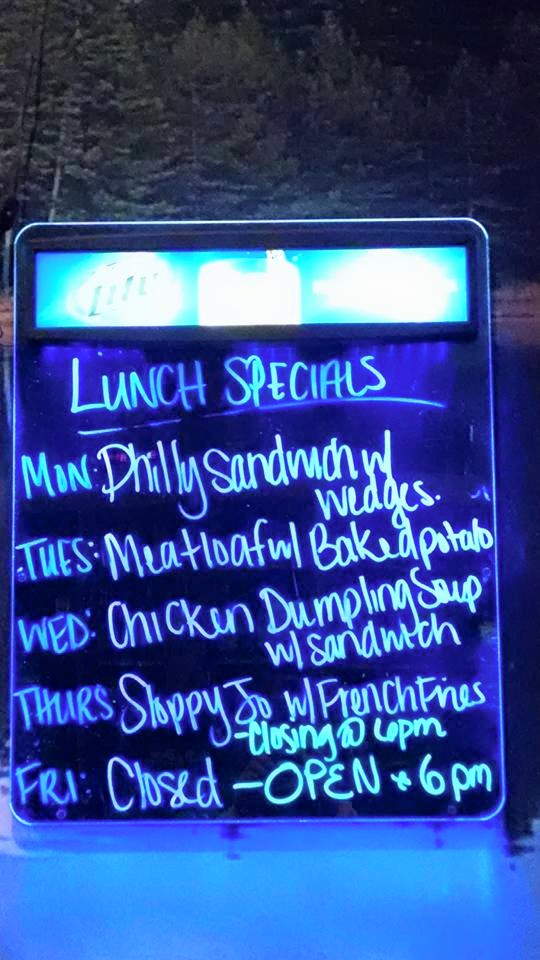 Lite
LUNCH SPECIALS
MON: Philly Sandwich w/
wedges.
TUES: Meatloaf w/ Baked potato
WED: Chicken Dumpling Soup
w/ Sandwich
THURS: Sloppy Jo w/ French Fries
-Closing @ 6pm
FRI: Closed - OPEN * 6pm